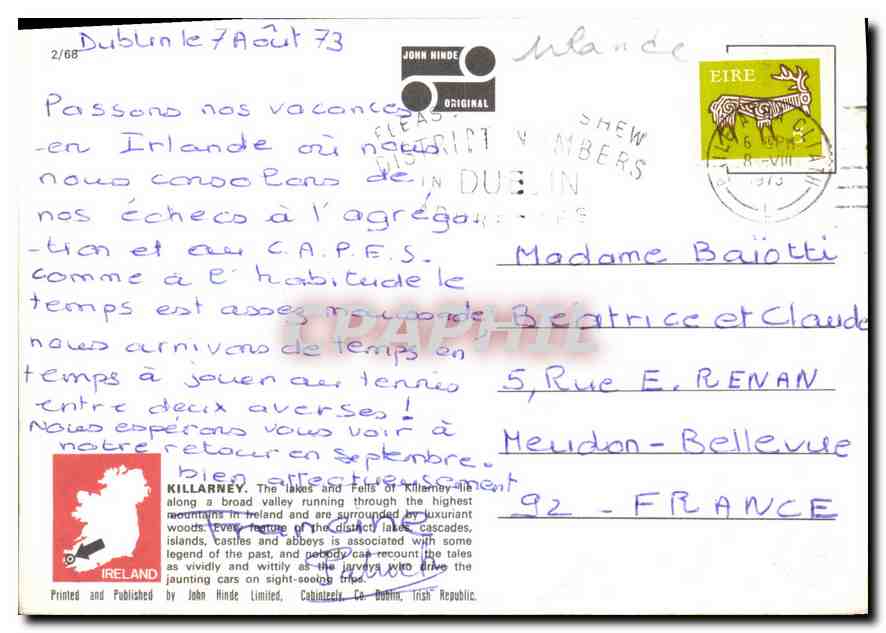 Dublin le 7 Août 73
2/68
JOHN HINDE
ORIGINAL
Irlande
EIRE
Passons nos vacances
en Irlande où nous
nous consolons de
nos échecs à l'agréga
-tion et au C.A.P.E.S.
comme à l'habitude le
temps est assez maussade
nous arrivons de temps en
temps à jouer au tennis
entre deux averses!
Nous espérons vous voir à
notre retour en septembre.
bien affectueusement
Francine
PLEASE SHEW
DISTRICT NUMBERS
IN DUBLIN
ADDRESSES
BAILE ATHA CLIATH
6 PM
8 VIII
1973
Madame Baïotti
Béatrice et Claude
5, Rue E. RENAN
Meudon-Bellevue
92 - FRANCE
CPAPHIL
IRELAND
KILLARNEY. The lakes and Fells of Killarney lie
along a broad valley running through the highest
mountains in Ireland and are surrounded by luxuriant
woods. Every feature of the district lakes, cascades,
islands, castles and abbeys is associated with some
legend of the past, and nobody can recount the tales
as vividly and wittily as the jarveys who drive the
jaunting cars on sight-seeing trips.
Printed and Published by John Hinde Limited, Cabinteely, Co. Dublin, Irish Republic.